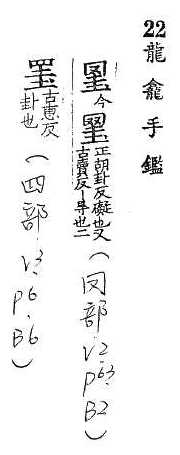 22 龍龕手鑑
今 正胡卦反礙也又古賣反一㝵也二 (冈部.V2.P63.B2)
古惠反卦也 (四部.V3.P6.B6)